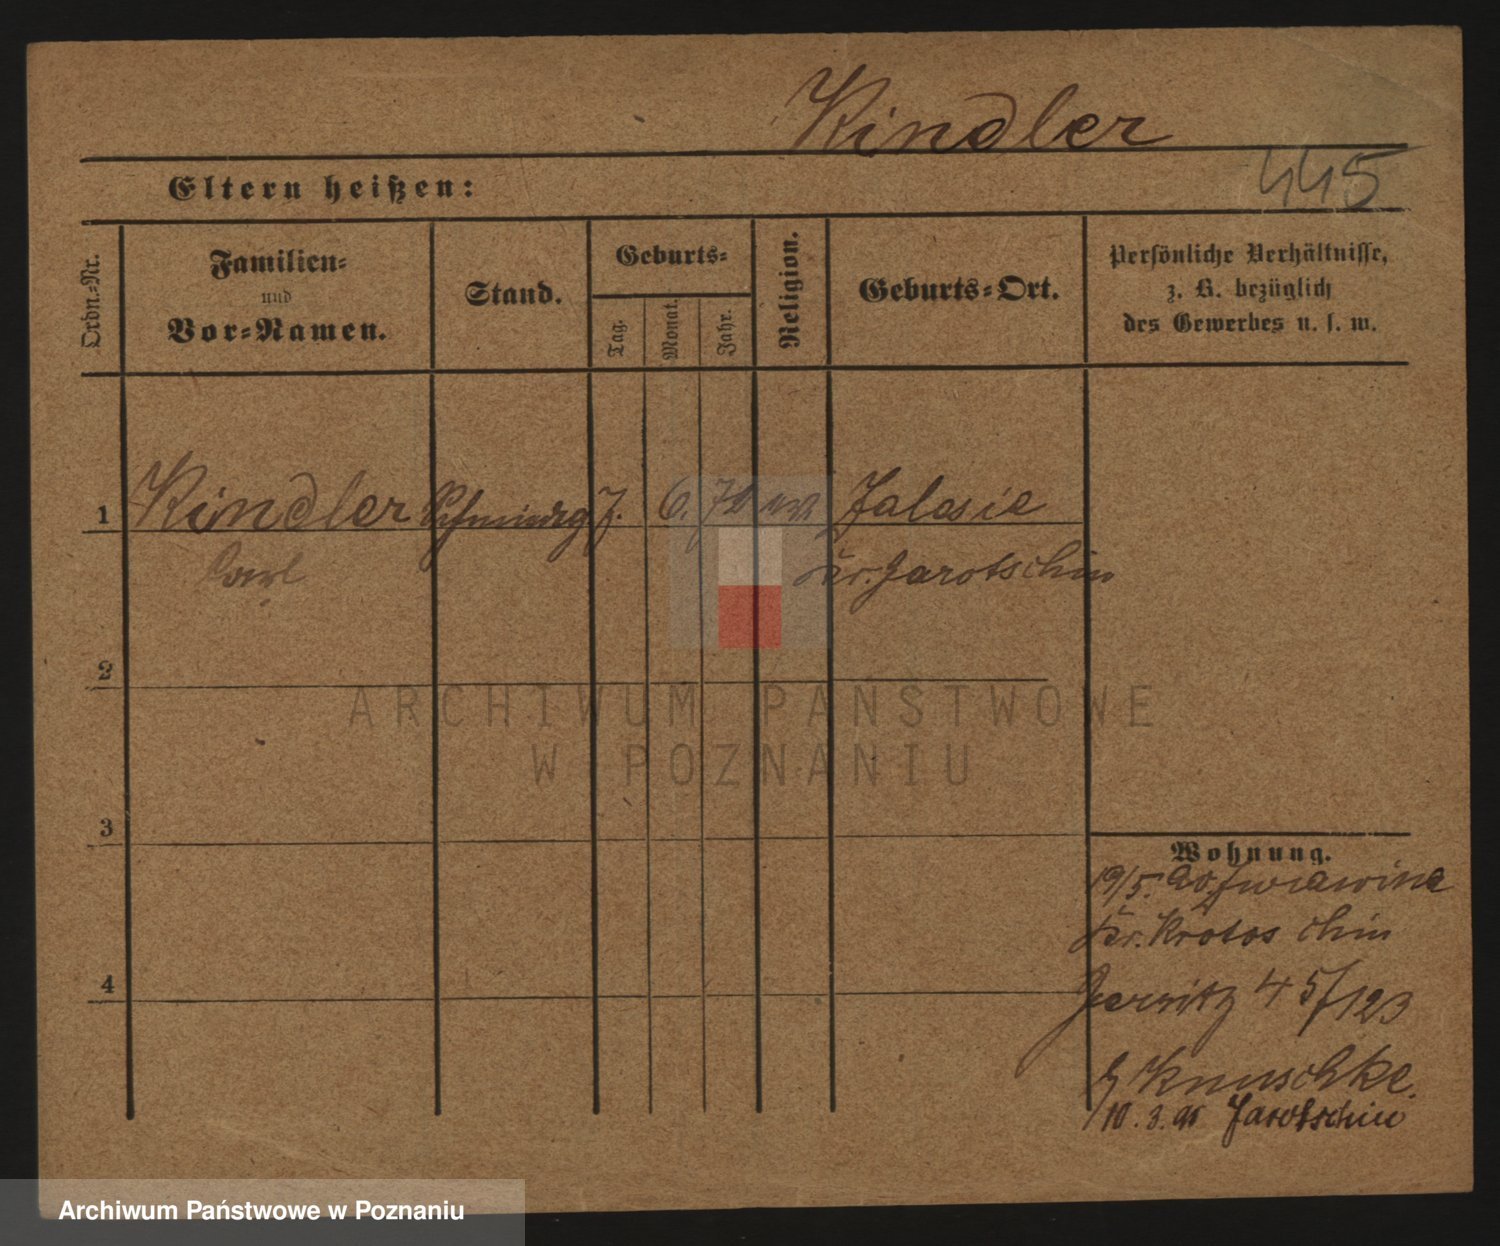 Kindler
445
Eltern heißen:
Ordn.-Nr.
Familien-
und
Vor-Namen.
Stand.
Geburts-
Tag.
Monat.
Jahr.
Religion.
Geburts-Ort.
Persönliche Verhältnisse,
z. B. bezüglich
des Gewerbes u. s. w.
1 Kindler 7. 6. 70 ev. Zalesie
Carl Kr. Jarotschin
2
3
4
Wohnung.
19/5.
Kr. Krotoschin
Jersitz 45/123
b/ Knuschke.
10. 3. 95 Jarotschin
ARCHIWUM PAŃSTWOWE
W POZNANIU
Archiwum Państwowe w Poznaniu